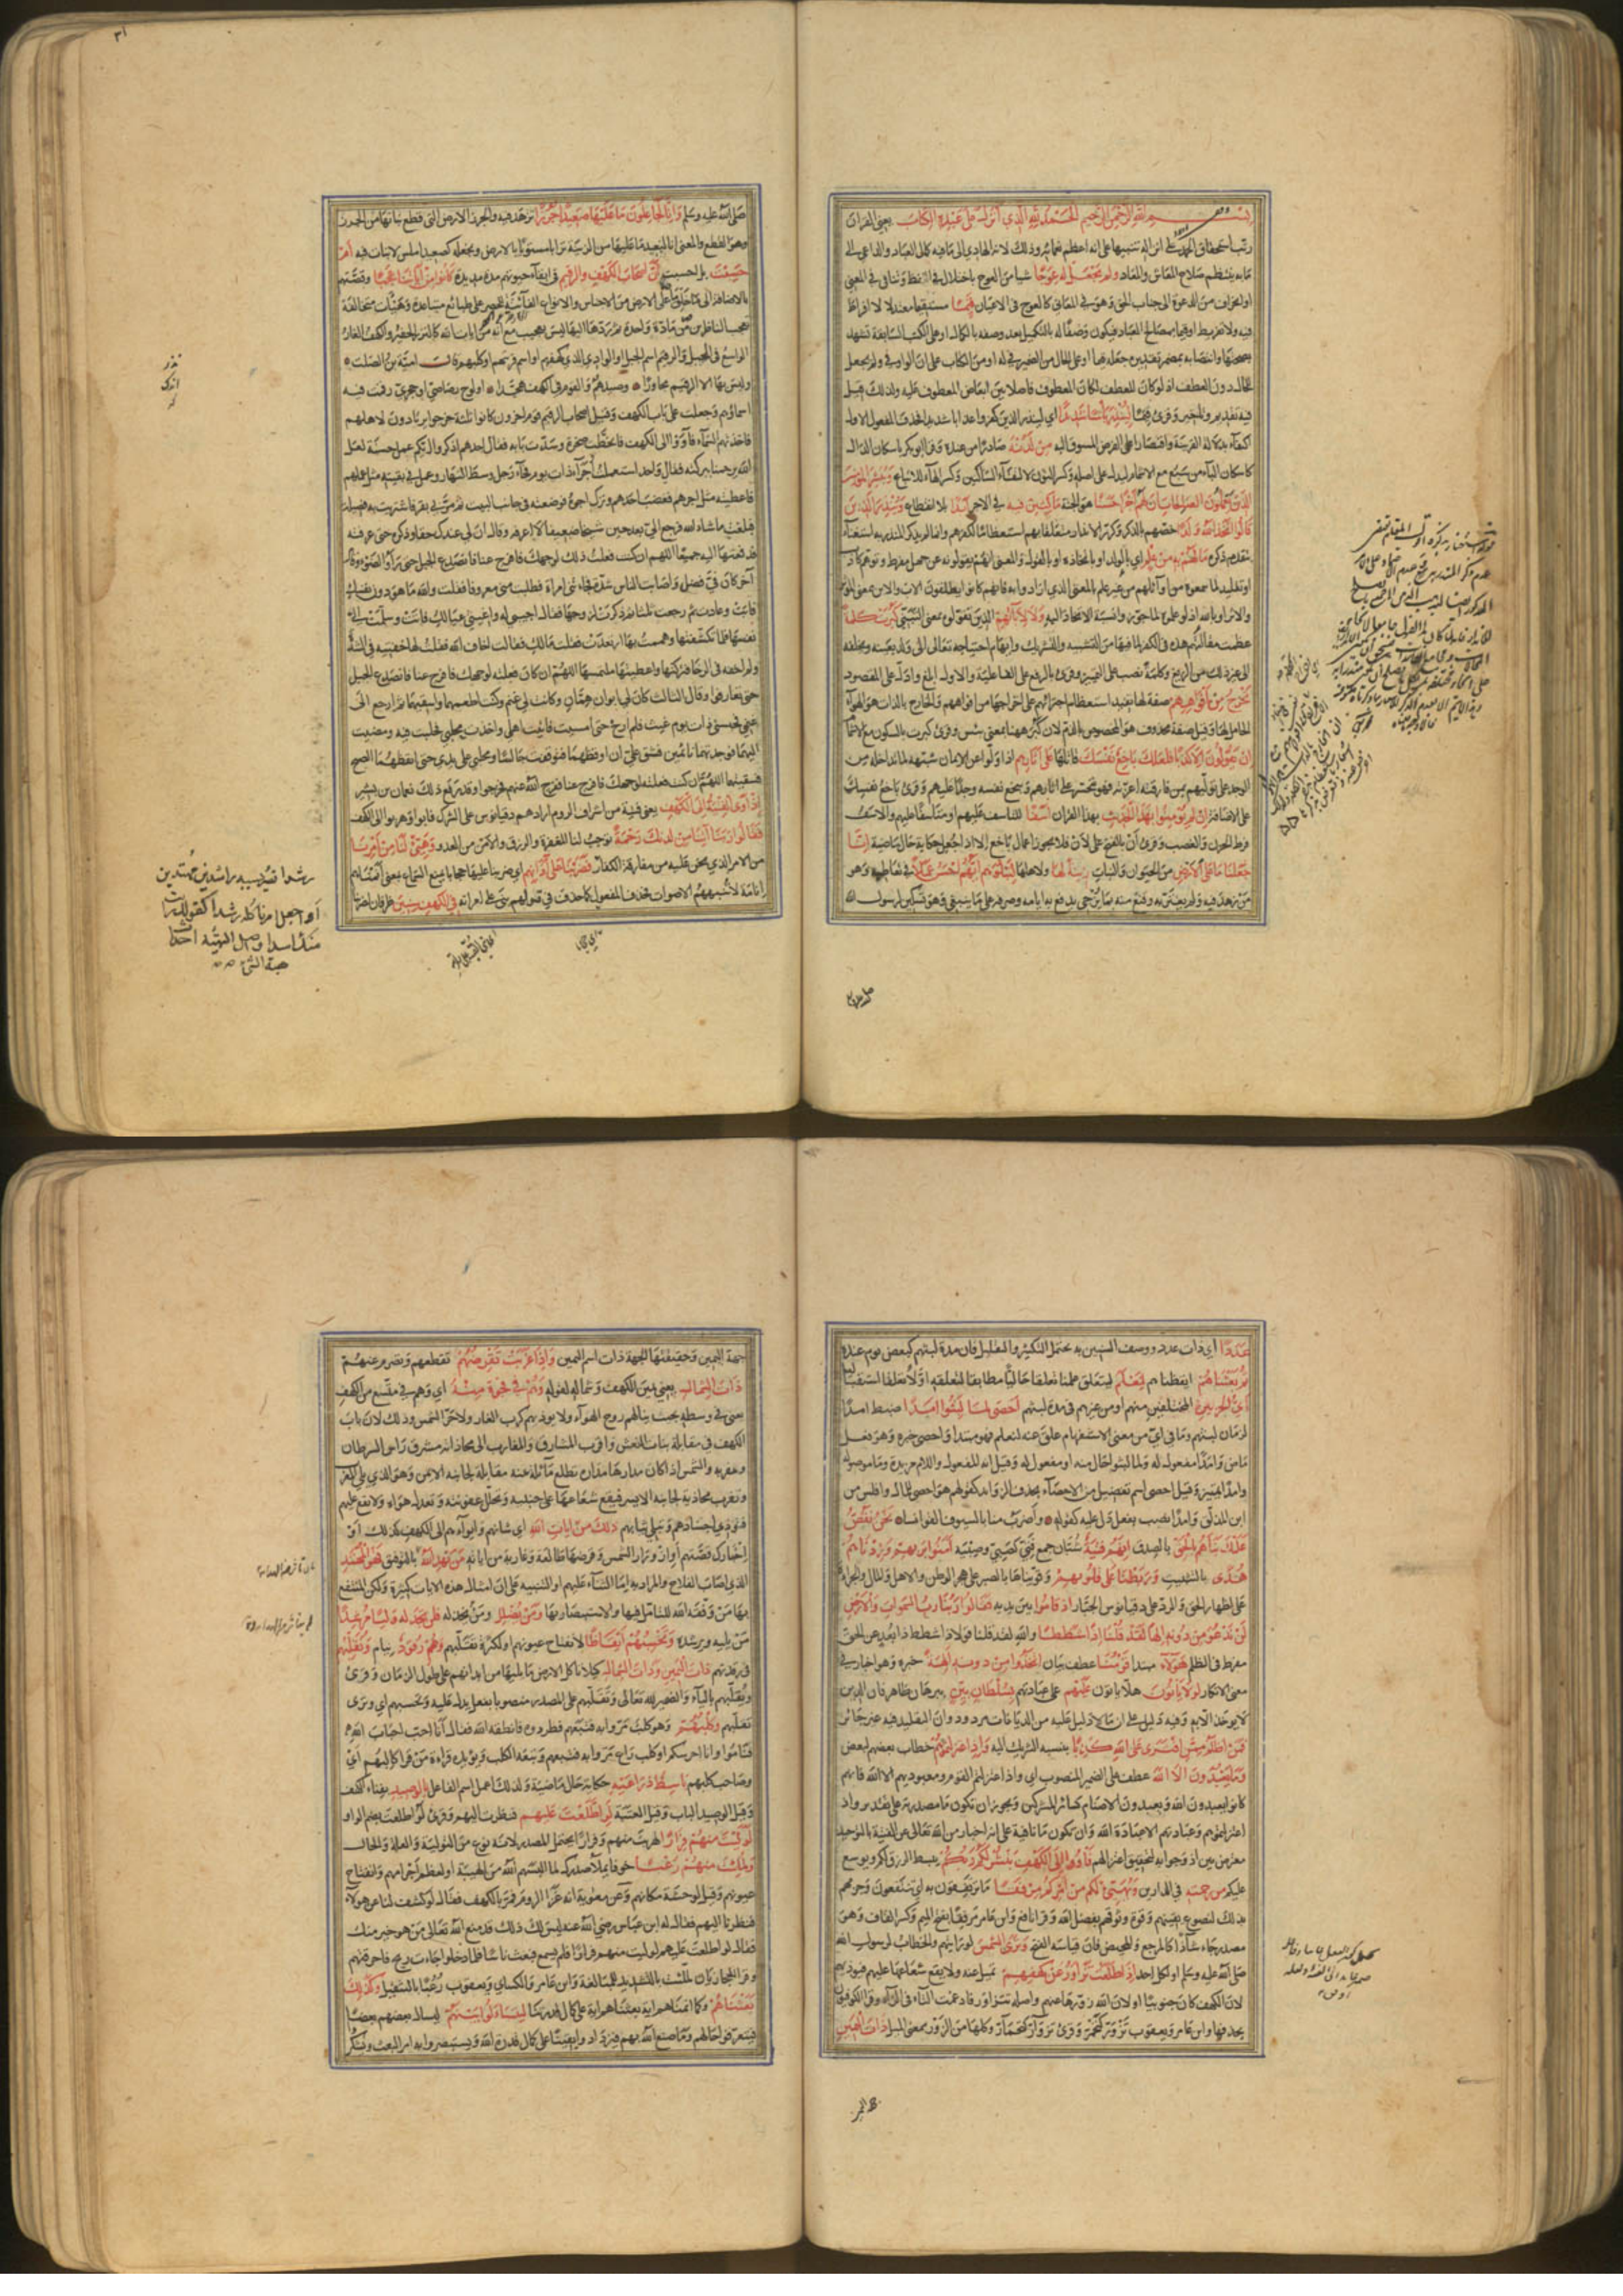 بسم الله الرحمن الرحيم الحمد لله الذي انزل على عبده الكتاب يعني القران
رتب استحقاق الحمد على انزاله تنبيها على انه اعظم نعمائه وذلك لانه الهادي الى ما فيه كمال العباد والداعي الى
ما به ينتظم صلاح المعاش والمعاد ولم يجعل له عوجا شيا من العوج باختلال في اللفظ وتناف في المعنى
او انحراف من الدعوة الى جناب الحق وهو في المعاني كالعوج في الاعيان قيما مستقيما معتدلا لا افراط
فيه ولا تفريط او قيما بمصالح العباد فيكون وصفا له بالتكميل بعد وصفه بالكمال او على الكتب السابقة تشهد
بصحتها وانتصابه بمضمر تقديره جعله قيما او على الحال من الضمير في له او من الكتاب على ان الواو في ولم يجعل
للحال دون العطف اذ لو كان للعطف لكان المعطوف فاصلا بين ابعاض المعطوف عليه ولذلك قيل
فيه تقديم وتاخير وقرئ قيما لينذر باسا شديدا اي لينذر الذين كفروا عذابا شديدا فحذف المفعول الاول
اكتفاء بدلالة القرينة واقتصارا على الغرض المسوق اليه من لدنه صادرا من عنده وقرا ابو بكر باسكان الدال
كاسكان الباء من سبع مع الاشمام ليدل على اصله وكسر النون لالتقاء الساكنين وكسر الهاء للاتباع ويبشر المؤمنين
الذين يعملون الصالحات ان لهم اجرا حسنا هو الجنة ماكثين فيه في الاجر ابدا بلا انقطاع وينذر الذين
قالوا اتخذ الله ولدا خصهم بالذكر وكرر الانذار متعلقا بهم استعظاما لكفرهم وانما لم يذكر المنذر به استغناء
بتقدم ذكره ما لهم به من علم اي بالولد او باتخاذه او بالقول والمعنى انهم يقولونه عن جهل مفرط وتوهم كاذب
او تقليد لما سمعوه من اوائلهم من غير علم بالمعنى الذي ارادوا به فانهم كانوا يطلقون الاب والابن بمعنى المؤثر
والاثر او بالله اذ لو علموه لما جوزوا نسبة الاتخاذ اليه ولا لابائهم الذين تقولوه بمعنى التبني كبرت كلمة
عظمت مقالتهم هذه في الكفر لما فيها من التشبيه والتشريك وايهام احتياجه تعالى الى ولد يعينه ويخلفه
الى غير ذلك من الزيغ وكلمة نصب على التمييز وقرئ بالرفع على الفاعلية والاول ابلغ وادل على المقصود
تخرج من افواههم صفة لها تفيد استعظام اجترائهم على اخراجها من افواههم والخارج بالذات هو الهواء
الحامل لها وقيل صفة محذوف هو المخصوص بالذم لان كبر ههنا بمعنى بئس وقرئ كبرت بالسكون مع الاشمام
ان يقولون الا كذبا فلعلك باخع نفسك قاتلها على اثارهم اذا ولوا عن الايمان شبهه لما تداخله من
الوجد على توليهم بمن فارقته اعزته فهو يتحسر على اثارهم ويبخع نفسه وجدا عليهم وقرئ باخع نفسك
على الاضافة ان لم يؤمنوا بهذا الحديث بهذا القران اسفا للتاسف عليهم او متاسفا عليهم والاسف
فرط الحزن والغضب وقرئ أن بالفتح على لأن فلا يجوز اعمال باخع الا اذا جعل حكاية حال ماضية انا
جعلنا ما على الارض من الحيوان والنبات زينة لها ولاهلها لنبلوهم ايهم احسن عملا في تعاطيه وهو
من زهد فيه ولم يغتر به وقنع منه بما يزجي به ايامه وصرفه على ما ينبغي وفيه تسكين لرسول الله
صلى الله عليه وسلم وانا لجاعلون ما عليها صعيدا جرزا تزهيد فيه والجرز الارض التي قطع نباتها من الجرز
وهو القطع والمعنى انا لنعيد ما عليها من الزينة ترابا مستويا بالارض ونجعله كصعيد املس لا نبات فيه ام
حسبت بل احسبت ان اصحاب الكهف والرقيم في ابقاء حيوتهم مدة مديدة كانوا من اياتنا عجبا وقصتهم
بالاضافة الى ما خلق ما على الارض من الاجناس والانواع الفائتة للحصر على طبائع متباعدة وهيئات متخالفة
تعجب الناظرين من مادة واحدة ثم ردها اليها ليس بعجيب مع انه من ايات الله كالنزر الحقير والكهف الغار
الواسع في الجبل والرقيم اسم الجبل او الوادي الذي فيه كهفهم او اسم قريتهم او كلبهم قال امية بن ابي الصلت
وليس بها الا الرقيم مجاورا وصيدهم والقوم في الكهف همدا او لوح رصاصي او حجري رقمت فيه
اسماؤهم وجعلت على باب الكهف وقيل اصحاب الرقيم قوم اخرون كانوا ثلثة خرجوا يرتادون لاهلهم
فاخذتهم السماء فاووا الى الكهف فانحطت صخرة وسدت بابه فقال احدهم اذكروا ايكم عمل حسنة لعل
الله يرحمنا ببركته فقال واحد استعملت اجراء ذات يوم فجاء رجل وسط النهار وعمل في بقيته مثل عملهم
فاعطيته مثل اجرهم فغضب احدهم وترك اجره فوضعته في جانب البيت ثم مر بي بقر فاشتريت به فصيلة
فبلغت ما شاء الله فرجع الي بعد حين شيخا ضعيفا لا اعرفه وقال ان لي عندك حقا وذكره حتى عرفته
فدفعتها اليه جميعا اللهم ان كنت فعلت ذلك لوجهك فافرج عنا فانصدع الجبل حتى راوا الضوء وقال
آخر كان في فضل واصابت الناس شدة فجاءتني امراة فطلبت مني معروفا فقلت والله ما هو دون نفسك
فابت وعادت ثم رجعت ثلثا ثم ذكرت لزوجها فقال اجيبي له واغيثي عيالك فاتت وسلمت الي
نفسها فلما تكشفتها وهممت بها ارتعدت فقلت مالك فقالت اخاف الله فقلت لها خفتيه في الشدة
ولم اخفه في الرخا فتركتها واعطيتها ملتمسها اللهم ان كان فعلته لوجهك فافرج عنا فانصدع الجبل
حتى تعارفوا وقال الثالث كان لي ابوان همان وكانت لي غنم وكنت اطعمهما واسقيهما ثم ارجع الى
غنمي فحبسني ذات يوم غيث فلم ارح حتى امسيت فاتيت اهلي واخذت محلبي فحلبت فيه ومضيت
اليهما فوجدتهما نائمين فشق علي ان اوقظهما فتوقفت جالسا ومحلبي على يدي حتى ايقظهما الصبح
فسقيتهما اللهم ان كنت فعلته لوجهك فافرج عنا ففرج الله عنهم فخرجوا وقد رفع ذلك نعمان بن بشير
اذ اوى الفتية الى الكهف يعني فتية من اشراف الروم ارادهم دقيانوس على الشرك فابوا وهربوا الى الكهف
فقالوا ربنا اتنا من لدنك رحمة توجب لنا المغفرة والرزق والامن من العدو وهيئ لنا من امرنا
من الامر الذي نحن عليه من مفارقة الكفار فضربنا على اذانهم اي ضربنا عليها حجابا يمنع السماع بمعنى انمناهم
انامة لا تنبههم الاصوات فحذف المفعول كما حذف في قولهم بنى على امراته في الكهف سنين ظرفان لضربنا
رشدا نصير بسببه راشدين مهتدين
او اجعل امرنا كله رشدا كقولك رايت
منك اسدا واصل التهيئة احداث
هيئة الشئ
عددا اي ذات عدد ووصف السنين به يحتمل التكثير والتقليل فان مدة لبثهم كبعض يوم عنده
ثم بعثناهم ايقظناهم لنعلم ليتعلق علمنا تعلقا حاليا مطابقا لتعلقه اولا تعلقا استقباليا
اي الحزبين المختلفين منهم او من غيرهم في مدة لبثهم احصى لما لبثوا امدا ضبط امدا
لزمان لبثهم وما في اي من معنى الاستفهام علق عنه لنعلم فهو مبتدا واحصى خبره وهو فعل
ماض وامدا مفعول له ولما لبثوا حال منه او مفعول له وقيل انه المفعول واللام مزيدة وما موصولة
وامدا تمييز وقيل احصى اسم تفضيل من الاحصاء بحذف الزوائد كقولهم هو احصى للمال وافلس من
ابن المذلق وامدا نصب بفعل دل عليه كقوله واضرب منا بالسيوف القوانسا نحن نقص
عليك نباهم بالحق بالصدق انهم فتية شبان جمع فتى كصبي وصبية امنوا بربهم وزدناهم
هدى بالتثبيت وربطنا على قلوبهم وقويناها بالصبر على هجر الوطن والاهل والمال والجراة
على اظهار الحق والرد على دقيانوس الجبار اذ قاموا بين يديه فقالوا ربنا رب السموات والارض
لن ندعو من دونه الها لقد قلنا اذا شططا والله لقد قلنا قولا ذا شطط ذا بعد عن الحق
مفرط في الظلم هؤلاء مبتدا قومنا عطف بيان اتخذوا من دونه الهة خبره وهو اخبار في
معنى الانكار لولا ياتون هلا ياتون عليهم على عبادتهم بسلطان بين ببرهان ظاهر فان الدين
لا يوخذ الا به وفيه دليل على ان ما لا دليل عليه من الديانات مردود وان التقليد فيه غير جائز
فمن اظلم ممن افترى على الله كذبا بنسبة الشريك اليه واذ اعتزلتموهم خطاب بعضهم لبعض
وما يعبدون الا الله عطف على الضمير المنصوب اي واذ اعتزلتم القوم ومعبوديهم الا الله فانهم
كانوا يعبدون الله ويعبدون الاصنام كسائر المشركين ويجوز ان تكون ما مصدرية على تقدير واذ
اعتزلتموهم وعبادتهم الا عبادة الله وان تكون نافية على انه اخبار من الله تعالى عن الفتية بالتوحيد
معترض بين اذ وجوابه لتحقيق اعتزالهم فاووا الى الكهف ينشر لكم ربكم يبسط الرزق لكم ويوسع
عليكم من رحمته في الدارين ويهيئ لكم من امركم مرفقا ما ترتفقون به اي تنتفعون وجزمهم
بذلك لنصوع يقينهم وقوة وثوقهم بفضل الله وقرا نافع وابن عامر مرفقا بفتح الميم وكسر الفاء وهو
مصدر جاء شاذا كالمرجع والمحيض فان قياسه الفتح وترى الشمس لو رايتهم والخطاب لرسول الله
صلى الله عليه وسلم او لكل احد اذا طلعت تزاور عن كهفهم تميل عنه ولا يقع شعاعها عليهم فيوذيهم
لان الكهف كان جنوبيا او لان الله زورها عنهم واصله تتزاور فادغمت التاء في الزاء وقرا الكوفيون
بحذفها وابن عامر ويعقوب تزور كتحمر وقرئ تزوار كتحمار وكلها من الزور بمعنى الميل ذات اليمين
جهة اليمين وحقيقتها الجهة ذات اسم اليمين واذا غربت تقرضهم تقطعهم وتصرم عنهم
ذات الشمال يعني يمين الكهف وشماله لقوله وهم في فجوة منه اي وهم في متسع من الكهف
يعني في وسطه بحيث ينالهم روح الهواء ولا يوذيهم كرب الغار ولا حر الشمس وذلك لان باب
الكهف في مقابلة بنات النعش واقرب المشارق والمغارب الى محاذاته مشرق راس السرطان
ومغربه والشمس اذا كان مدارها مداره تطلع مائلة عنه مقابلة لجانبه الايمن وهو الذي يلي المغرب
وتغرب محاذية لجانبه الايسر فيقع شعاعها على جنبيه ويحلل عفونته ويعدل هواه ولا يقع عليهم
فيوذي اجسادهم ويبلي ثيابهم ذلك من ايات الله اي شانهم وايواءهم الى الكهف كذلك او
اخبارك قصتهم او ازورار الشمس وقرضها طالعة وغاربة من اياته من يهد الله بالتوفيق فهو المهتد
الذي اصاب الفلاح والمراد به اما الثناء عليهم او التنبيه على ان امثال هذه الايات كثيرة ولكن المنتفع
بها من وفقه الله للتامل فيها والاستبصار بها ومن يضلل ومن يخذله فلن تجد له وليا مرشدا
من يليه ويرشده وتحسبهم ايقاظا لانفتاح عيونهم او لكثرة تقلبهم وهم رقود نيام ونقلبهم
في رقدتهم ذات اليمين وذات الشمال كيلا تاكل الارض ما يليها من ابدانهم على طول الزمان وقرئ
ويقلبهم بالياء والضمير لله تعالى وتقلبهم على المصدر منصوبا بفعل يدل عليه وتحسبهم اي وترى
تقلبهم وكلبهم وهو كلب مروا به فتبعهم فطردوه فانطقه الله فقال انا احب احباب الله
فناموا وانا احرسكم او كلب راع مروا به فتبعهم وتبعه الكلب ويؤيده قراءة من قرا كالبهم اي
وصاحب كلبهم باسط ذراعيه حكاية حال ماضية ولذلك اعمل اسم الفاعل بالوصيد بفناء الكهف
وقيل الوصيد الباب وقيل العتبة لو اطلعت عليهم فنظرت اليهم وقرئ لو اطلعت بضم الواو
لوليت منهم فرارا لهربت منهم وفرارا يحتمل المصدر لانه نوع من التولية والعلة والحال
ولملئت منهم رعبا خوفا يملا صدرك لما البسهم الله من الهيبة او لعظم اجرامهم وانفتاح
عيونهم وقيل لوحشة مكانهم وعن معوية انه غزا الروم فمر بالكهف فقال لو كشفت لنا عن هولاء
فنظرنا اليهم فقال له ابن عباس رضي الله عنه ليس لك ذلك قد منع الله تعالى من هو خير منك
فقال لو اطلعت عليهم لوليت منهم فرارا فلم يسمع فبعث ناسا فلما دخلوا جاءت ريح فاحرقتهم
وقرا الحجازيان لملئت بالتشديد للمبالغة وابن عامر والكسائي ويعقوب رعبا بالتثقيل وكذلك
بعثناهم وكما انمناهم اية بعثناهم اية على كمال قدرتنا ليتساءلوا بينهم ليسال بعضهم بعضا
فيتعرفوا حالهم وما صنع الله بهم فيزدادوا يقينا على كمال قدرة الله ويستبصروا به امر البعث ويشكروا